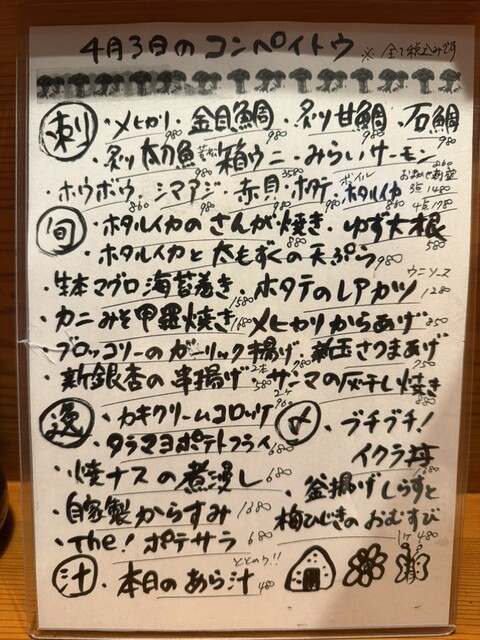 4月3日のコンペイトウ ※全て税込みです
刺 ・メヒカリ 980 ・金目鯛 980 ・炙り甘鯛 980 ・石鯛 980
・炙り太刀魚 980 ・箱ウニ 3580 ・みらいサーモン 860
・ホウボウ 860 シマアジ 980 ・赤貝 980 ・ホタテ 780 ・ボイルホタルイカ 860 おまかせ刺盛 3点1480 4点1780
旬 ・ホタルイカのさんが焼き 880 ・ゆず大根 580
・ホタルイカと太もずくの天ぷら 980
・生本マグロ海苔巻き 1580 ・ホタテのレアカツ ウニソース 1280
・カニみそ甲羅焼き 1680 メヒカリからあげ 850
ブロッコリーのガーリック揚げ 780 ・新玉さつまあげ 750
・新銀杏の串揚げ 2本580 サンマの灰干し焼き 880
逸 ・カキクリームコロッケ 2ケ960
・タラマヨポテトフライ 680
・焼ナスの煮浸し 680
・自家製からすみ 1380
・The!ポテサラ 680
〆 ・ブチブチ!
イクラ丼
・釜揚げしらすと
梅ひじきのおむすび 1ケ480
汁 ・本日のあら汁 480 ととのう!!